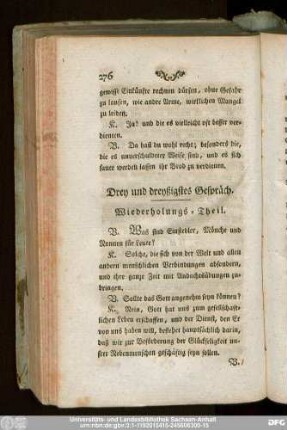 276
gewisse Einkünfte rechnen dürfen, ohne Gefahr
zu laufen, wie andre Arme, wirklichen Mangel
zu leiden.
K. Ja! und die es vielleicht oft besser ver-
dienten.
V. Da hast du wohl recht; besonders die,
die es unverschuldeter Weise sind, und es sich
sauer werden lassen ihr Brod zu verdienen.
Drey und dreyßigstes Gespräch.
Wiederholungs-Theil.
V. Was sind Einsiedler, Mönche und
Nonnen für Leute?
K. Solche, die sich von der Welt und allen
andern menschlichen Verbindungen absondern,
und ihre ganze Zeit mit Andachtsübungen zu-
bringen.
V. Sollte das Gott angenehm seyn können?
K. Nein, Gott hat uns zum gesellschaft-
lichen Leben erschaffen, und der Dienst, den Er
von uns haben will, bestehet hauptsächlich darin,
daß wir zur Beförderung der Glückseligkeit un-
srer Nebenmenschen geschäftig seyn sollen.
V.
Universitäts- und Landesbibliothek Sachsen-Anhalt
urn:nbn:de:gbv:3:1-1192015415-249566300-15
DFG